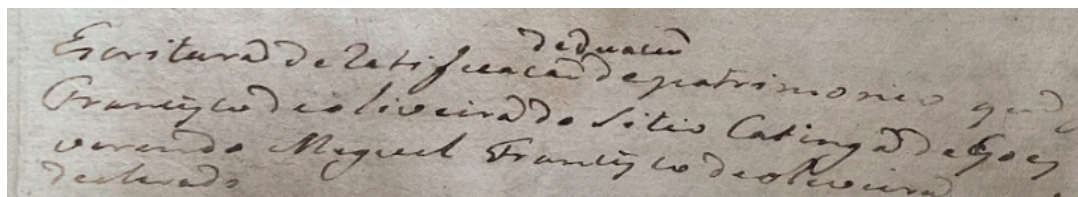 de duacaõ
Escritura de ratificacaõ de patrimonio que
Francisco de oliveira do Sitio Catinga de Goes
verendo Miguel Francisco de oliveira
declarado